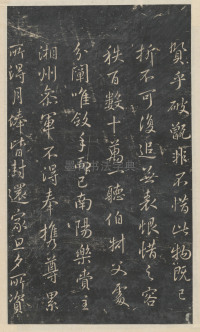 賢乎破甑非不惜此物既已
折不可復追無表恨惜之容
秩百數十萬一聽伯父處
分闌唯斂手而已南陽樂賞主
湘州參軍不得奉攜尊累
所得月俸皆封還家旦夕所資
书法字典